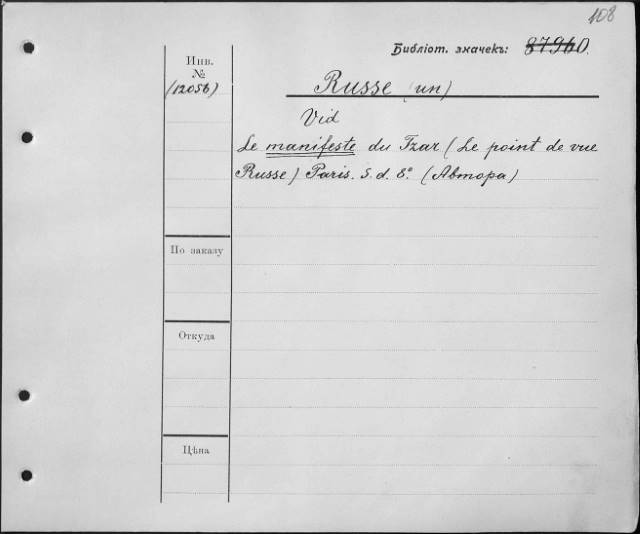 108
Библіот. значекъ: 87960.
Инв.
№
(12056)
Russe (un)
Vid
Le manifeste du Tzar (Le point de vue
Russe) Paris. S. d. 8º (Автора)
По заказу
Откуда
Цѣна